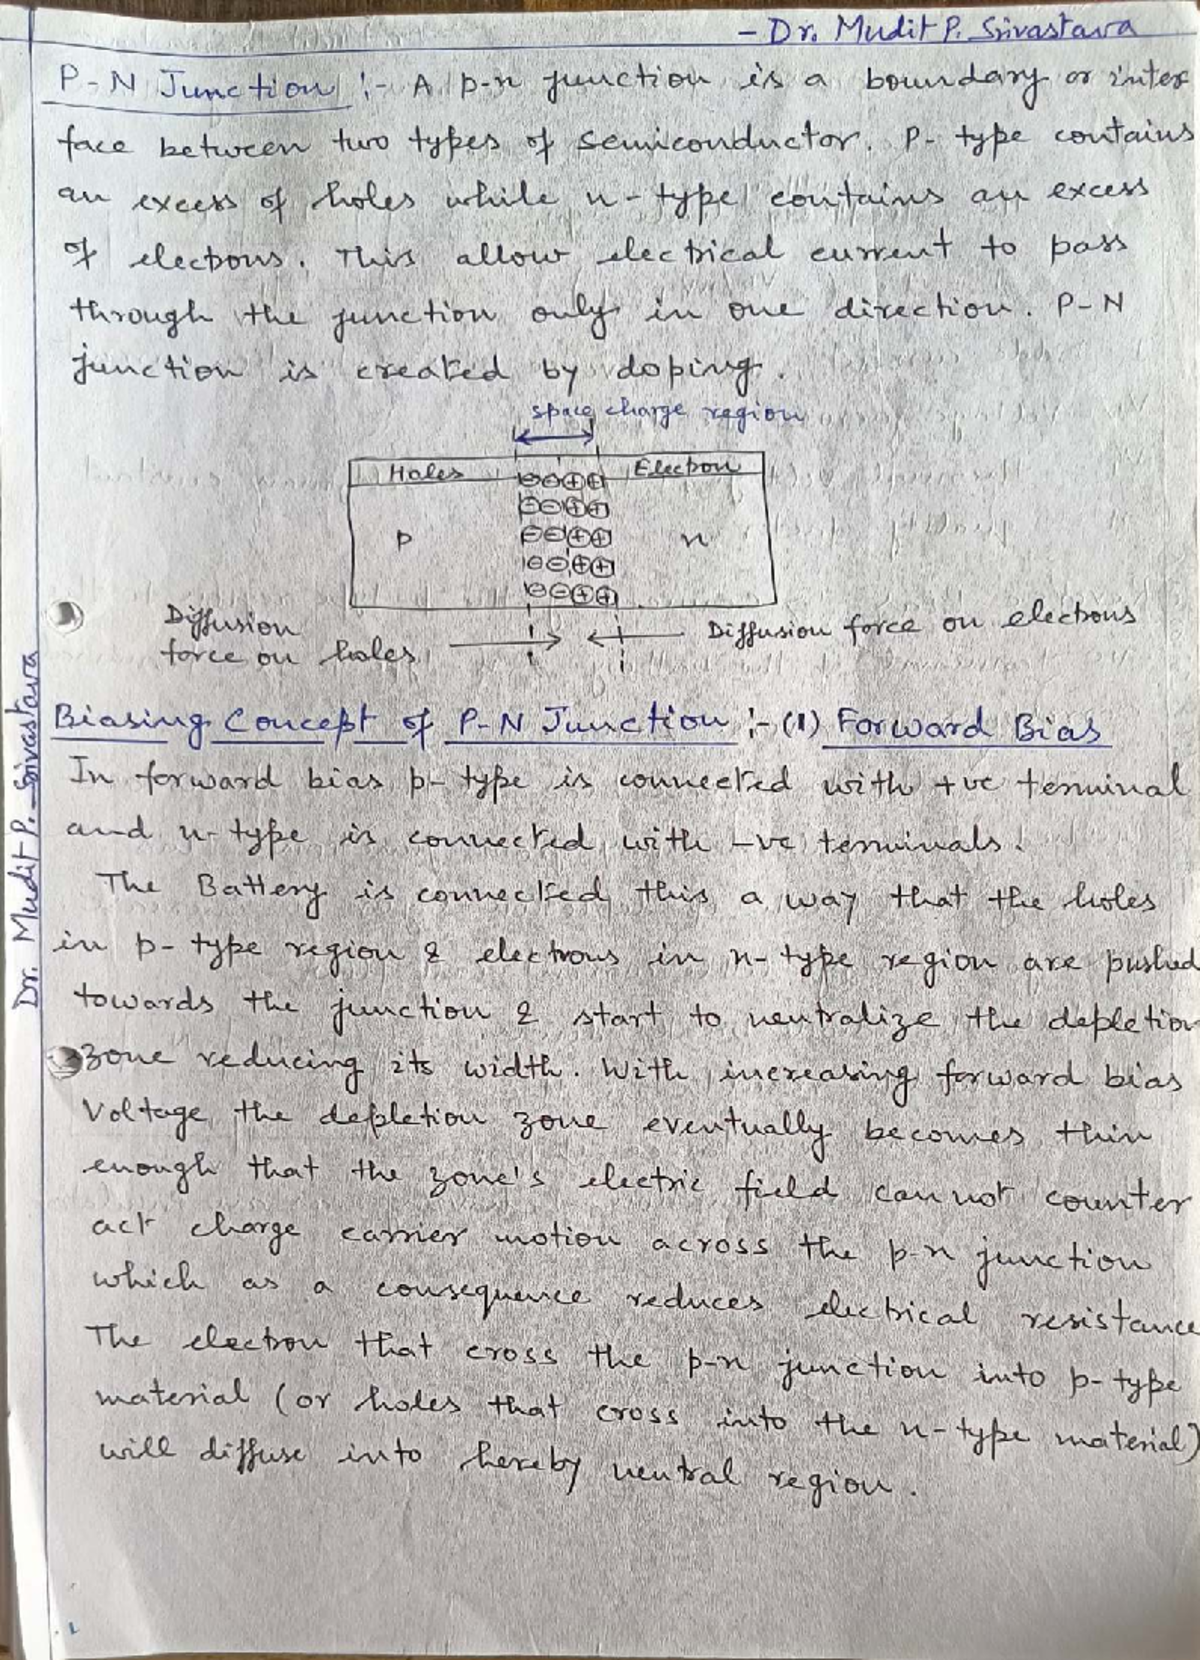 - Dr. Mudit P. Srivastava
P-N Junction :- A p-n junction is a boundary or inter
face between two types of semiconductor. P- type contains
an excess of holes while n-type contains an excess
of electrons. This allow electrical current to pass
through the junction only in one direction. P-N
junction is created by doping.
space charge region
Holes ⊖⊖⊕⊕ Electron
⊖⊖⊕⊕
p ⊖⊖⊕⊕ n
⊖⊖⊕⊕
⊖⊖⊕⊕
Diffusion
force on holes
Diffusion force on electrons
Biasing Concept of P-N Junction :- (1) Forward Bias
In forward bias p- type is connected with +ve terminal
and n-type is connected with -ve terminals.
The Battery is connected this a way that the holes
in p- type region & electrons in n-type region are pushed
towards the junction & start to neutralize the depletion
zone reducing its width. With increasing forward bias
Voltage the depletion zone eventually becomes thin
enough that the zone's electric field can not counter
act charge carrier motion across the p-n junction
which as a consequence reduces electrical resistance
The electron that cross the p-n junction into p-type
material (or holes that cross into the n-type material)
will diffuse into hereby neutral region.
Dr. Mudit P. Srivastava